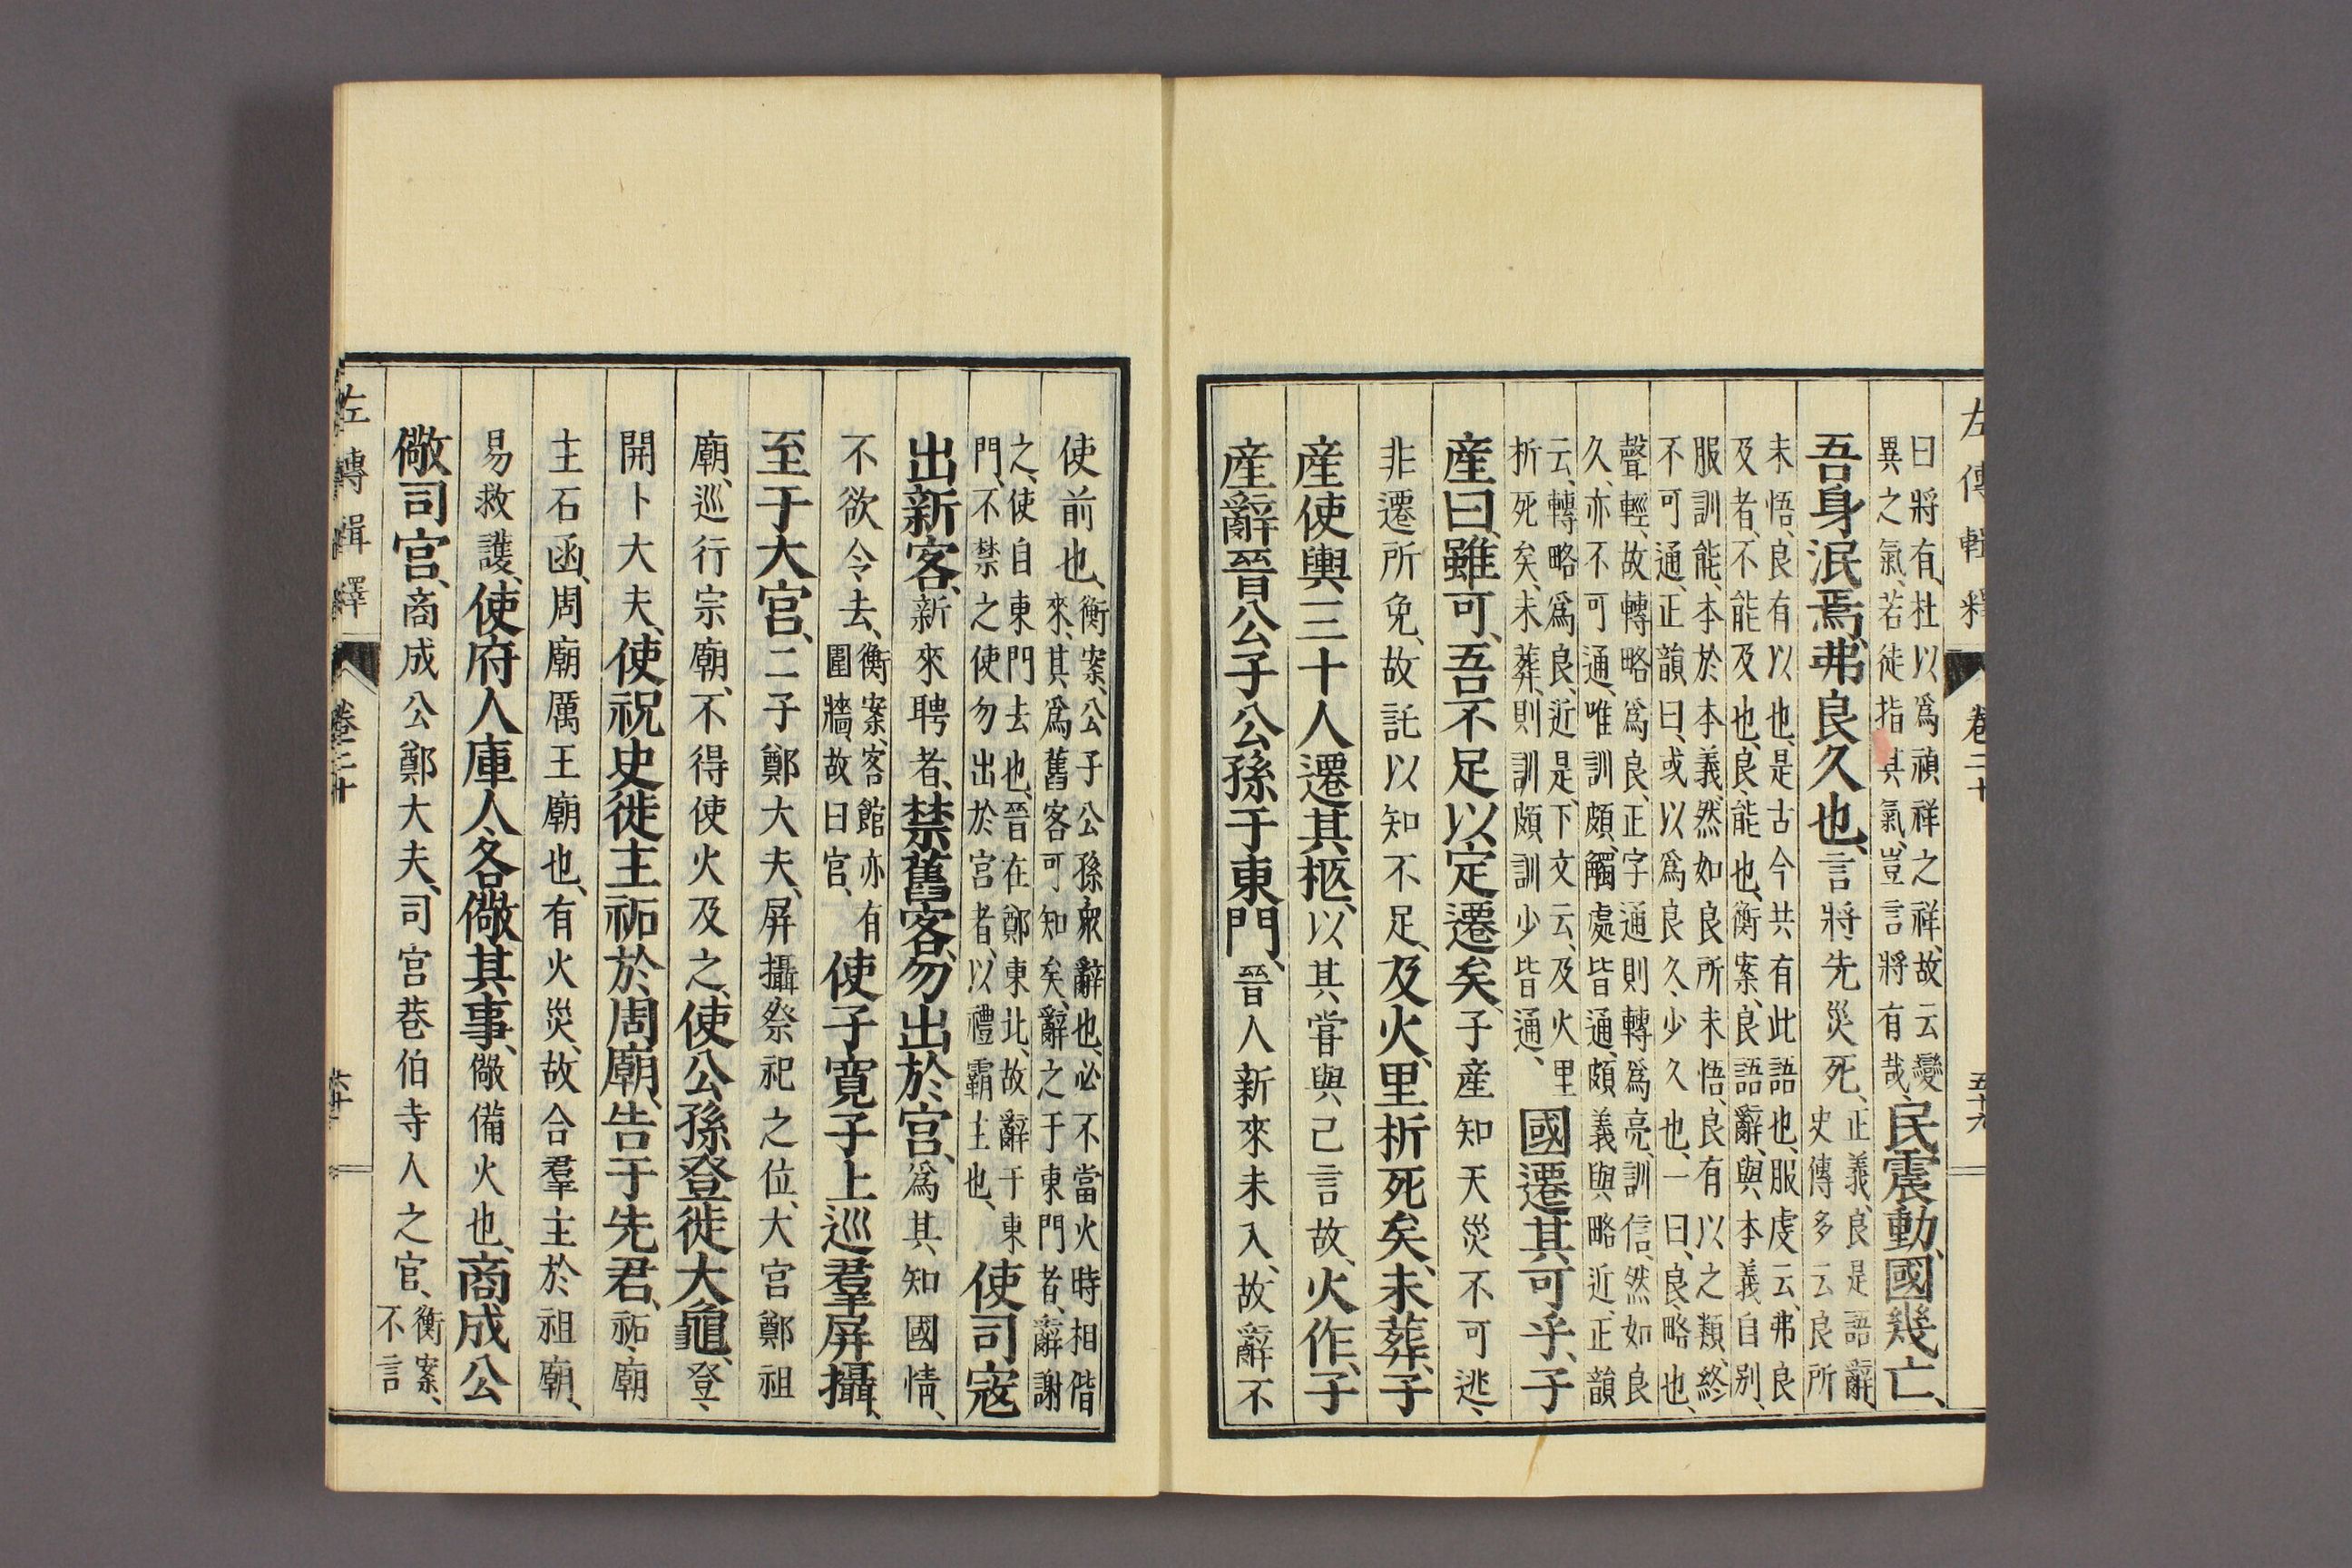 左傳輯釋 卷二十 五十九
曰將有、杜以爲禎祥之祥、故云變
異之氣、若徒指其氣、豈言將有哉、民震動、國幾亡、
吾身泯焉、弗良久也、言將先災死、正義、良是語辭
史傳多云良所
未悟、良有以也、是古今共有此語也、服虔云、弗良
及者、不能及也、良、能也、衡案、良語辭、與本義自别、
服訓能、本於本義、然如良所未悟、良有以之類、終
不可通、正韻曰、或以爲良久、少久也、一曰、良、略也、
聲輕、故轉略爲良、正字通則轉爲亮、訓信、然如良
久、亦不可通、唯訓頗、觸處皆通、頗義與略近、正韻
云、轉略爲良、近是、下文云、及火里
折死矣、未葬、則訓頗訓少皆通、國遷其可乎、子
産曰、雖可、吾不足以定遷矣、子産知天災不可逃、
非遷所免、故託以知不足、及火、里析死矣、未葬、子
産使輿三十人遷其柩、以其嘗與己言故、火作、子
産辭晉公子公孫于東門、晉人新來未入、故辭不
使前也、衡案、公子公孫衆辭也、必不當火時相偕
來、其爲舊客可知矣、辭之于東門者、辭謝
之、使自東門去也、晉在鄭東北、故辭于東
門、不禁之使勿出於宮者、以禮霸主也、使司寇
出新客、新來聘者、禁舊客勿出於宮、爲其知國情、
不欲令去、衡案、客館亦有
圍牆、故曰宮、使子寬子上巡羣屏攝、
至于大宮、二子鄭大夫、屏攝祭祀之位、大宮鄭祖
廟、巡行宗廟、不得使火及之、使公孫登徙大龜、登、
開卜大夫、使祝史徙主祏於周廟、告于先君、祏、廟
主石函、周廟厲王廟也、有火災、故合羣主於祖廟、
易救護、使府人庫人各儆其事、儆備火也、商成公
儆司宮、商成公鄭大夫、司宮巷伯寺人之官、衡案、
不言
左轉輯釋 卷二十 六十